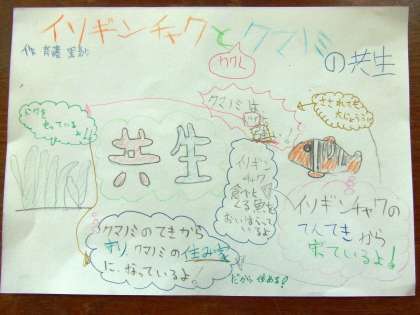 イソギンチャクとクマノミ
の共生
クマノミは
さされても
大じょうぶ
どくを
もっている
よ!!
共生
イソギン
チャクを
食べようと
する魚を
おいはらってい
るよ
イソギンチャクの
てんてきから
守っているよ!
クマノミのてきから
守り クマノミの住み家
に、なっているよ!
だから住める?